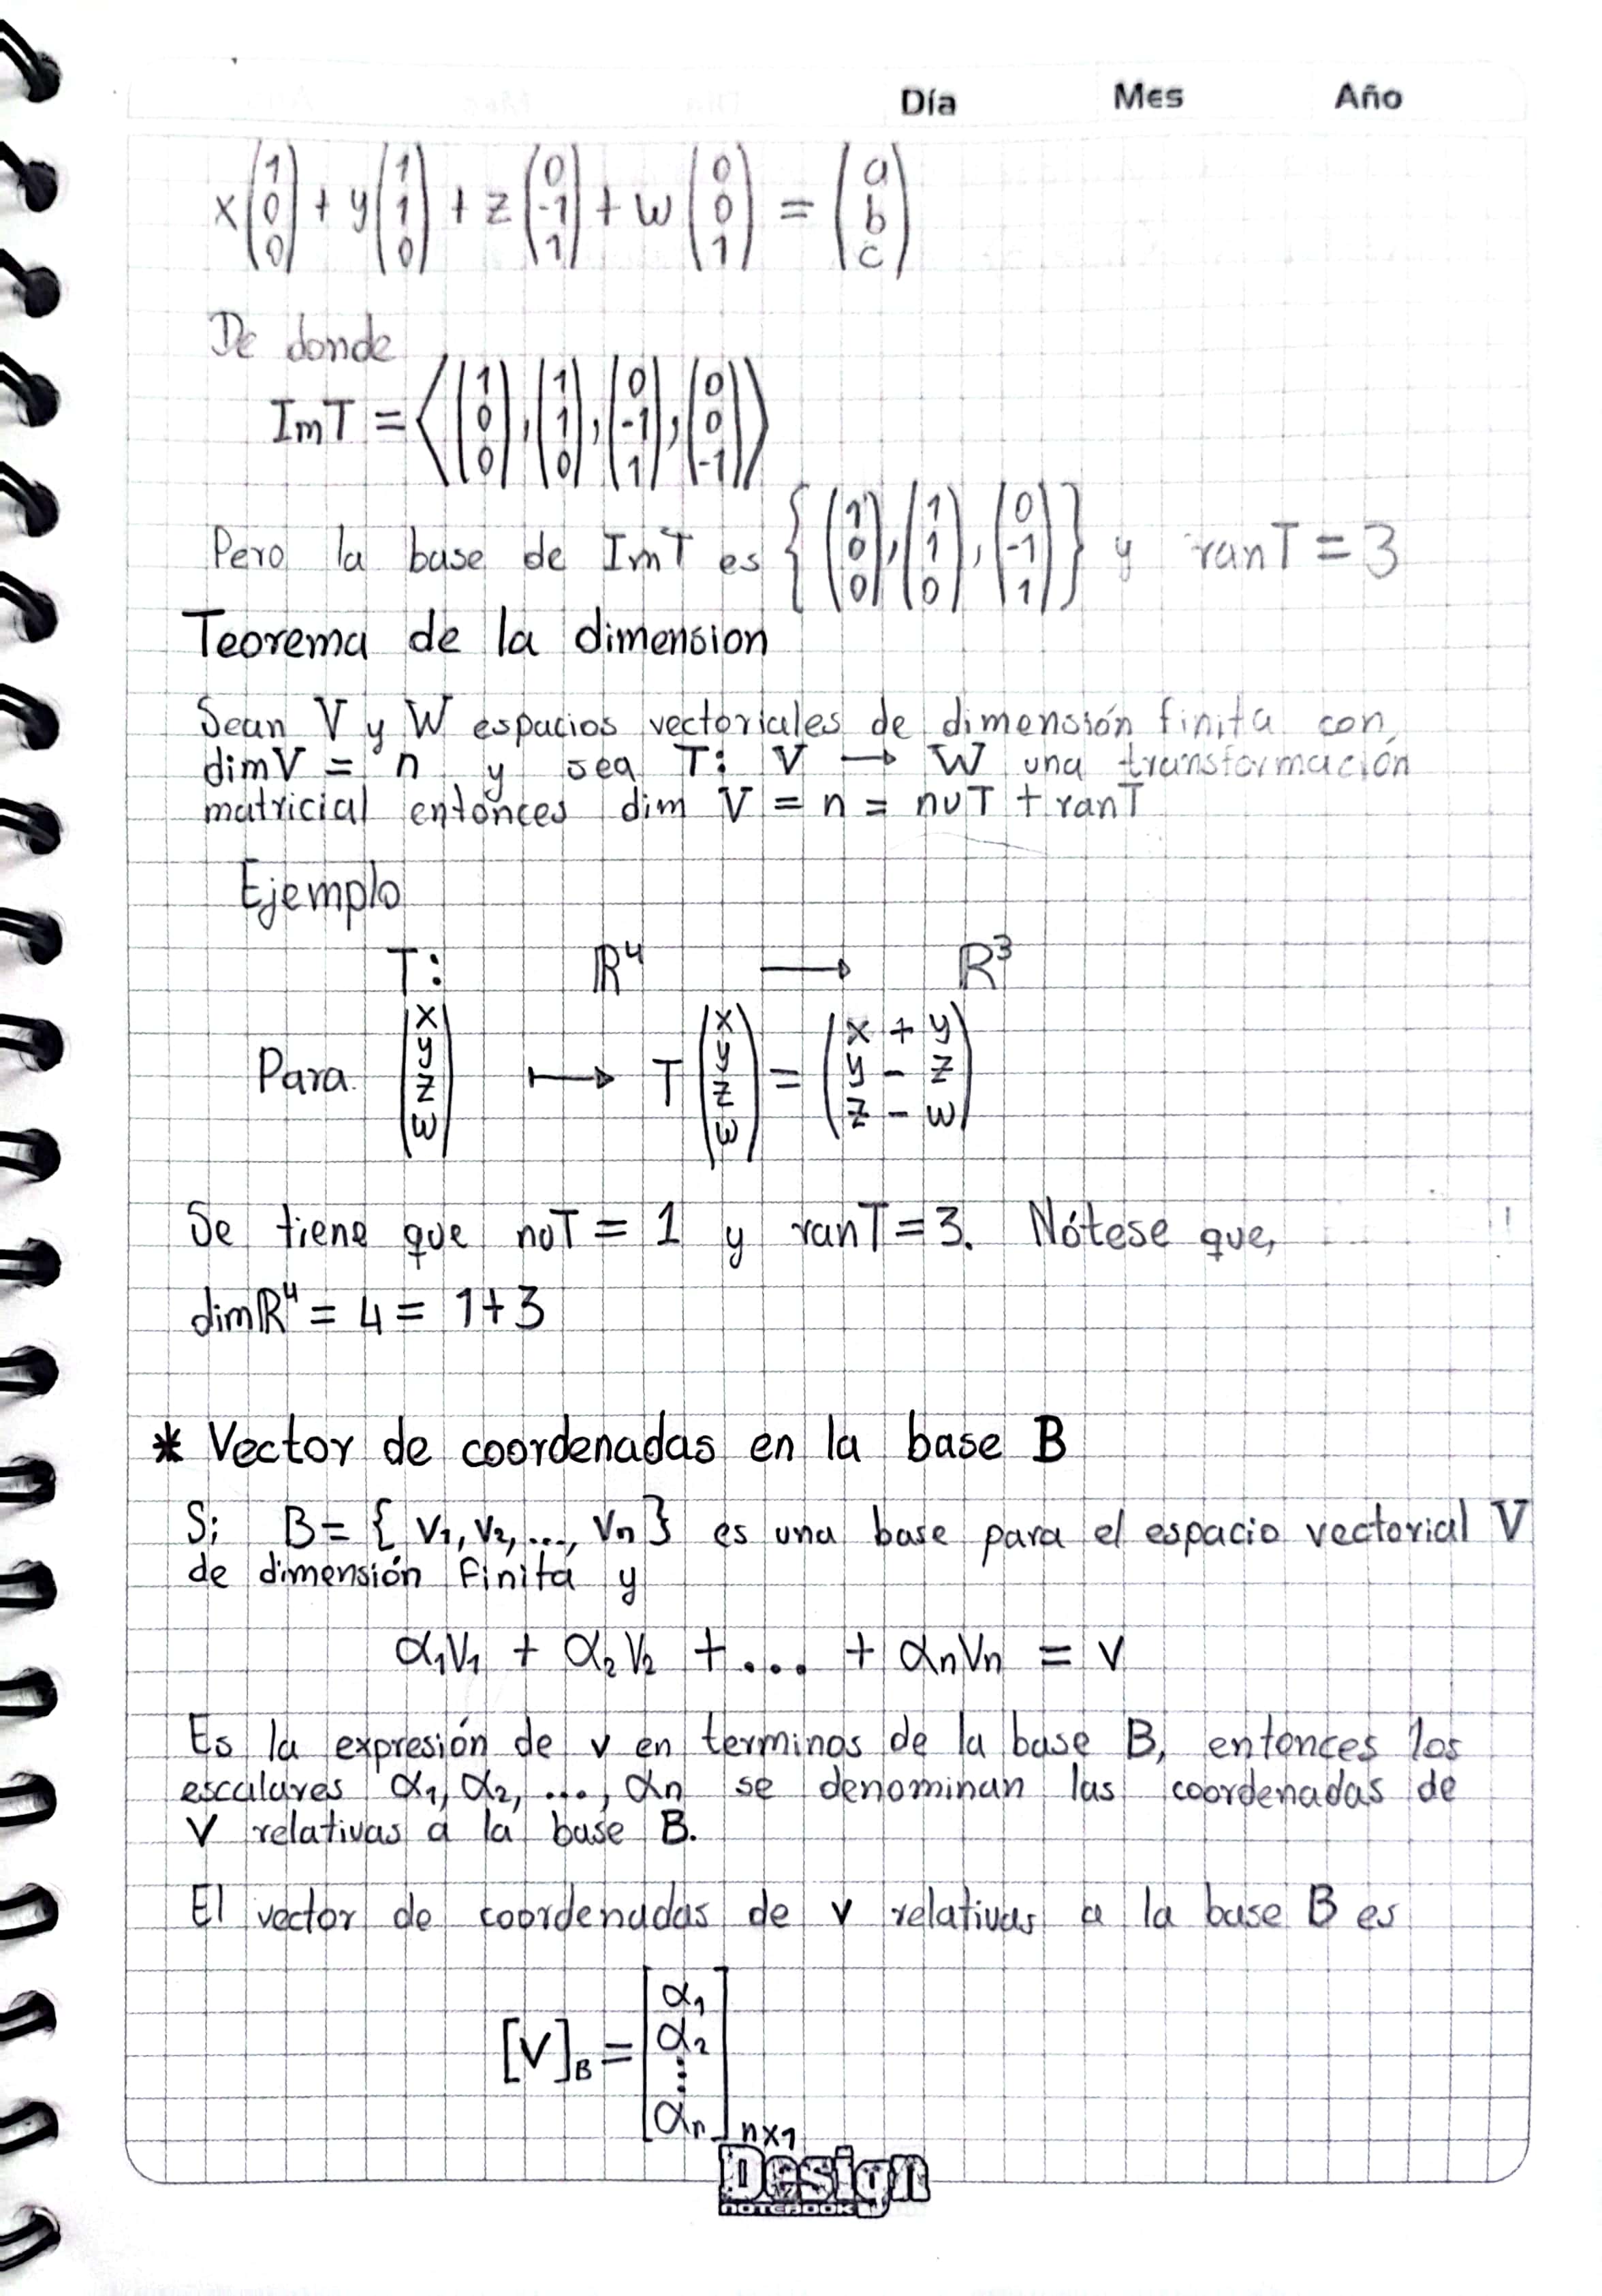 Día Mes Año
x(1 0 0) + y(1 1 0) + z(0 -1 1) + w(0 0 1) = (a b c)
De donde
ImT = ⟨(1 0 0), (1 1 0), (0 -1 1), (0 0 -1)⟩
Pero la base de ImT es {(1 0 0), (1 1 0), (0 -1 1)} y ranT = 3
Teorema de la dimension
Sean V y W espacios vectoriales de dimensión finita con,
dimV = n y sea T: V → W una transformación
matricial entonces dim V = n = nuT + ranT
Ejemplo
T: ℝ⁴ → ℝ³
Para (x y z w) ↦ T(x y z w) = (x + y y - z z - w)
Se tiene que nuT = 1 y ranT = 3. Nótese que,
dimℝ⁴ = 4 = 1+3
* Vector de coordenadas en la base B
Si B = { v₁, v₂, ..., vₙ } es una base para el espacio vectorial V
de dimensión finita y
α₁v₁ + α₂v₂ + .... + αₙvₙ = v
Es la expresión de v en terminos de la base B, entonces los
escalares α₁, α₂, ..., αₙ se denominan las coordenadas de
v relativas a la base B.
El vector de coordenadas de v relativas a la base B es
[v]B = [α₁ α₂ ⋮ αₙ] nx1
Design
NOTEBOOK